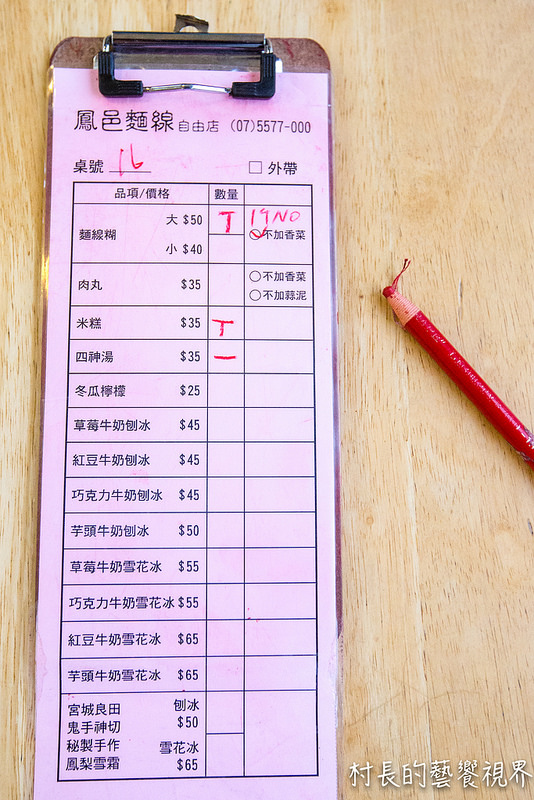 鳳邑麵線 自由店 (07)5577-000
桌號 16 □ 外帶
品項/價格 數量
麵線糊 大 $50 T 19NO
○不加香菜
小 $40
肉丸 $35 ○不加香菜
○不加蒜泥
米糕 $35 T
四神湯 $35 一
冬瓜檸檬 $25
草莓牛奶刨冰 $45
紅豆牛奶刨冰 $45
巧克力牛奶刨冰 $45
芋頭牛奶刨冰 $50
草莓牛奶雪花冰 $55
巧克力牛奶雪花冰 $55
紅豆牛奶雪花冰 $65
芋頭牛奶雪花冰 $65
宮城良田 刨冰
鬼手神切 $50
秘製手作 雪花冰
鳳梨雪霜 $65
村長的藝饗視界